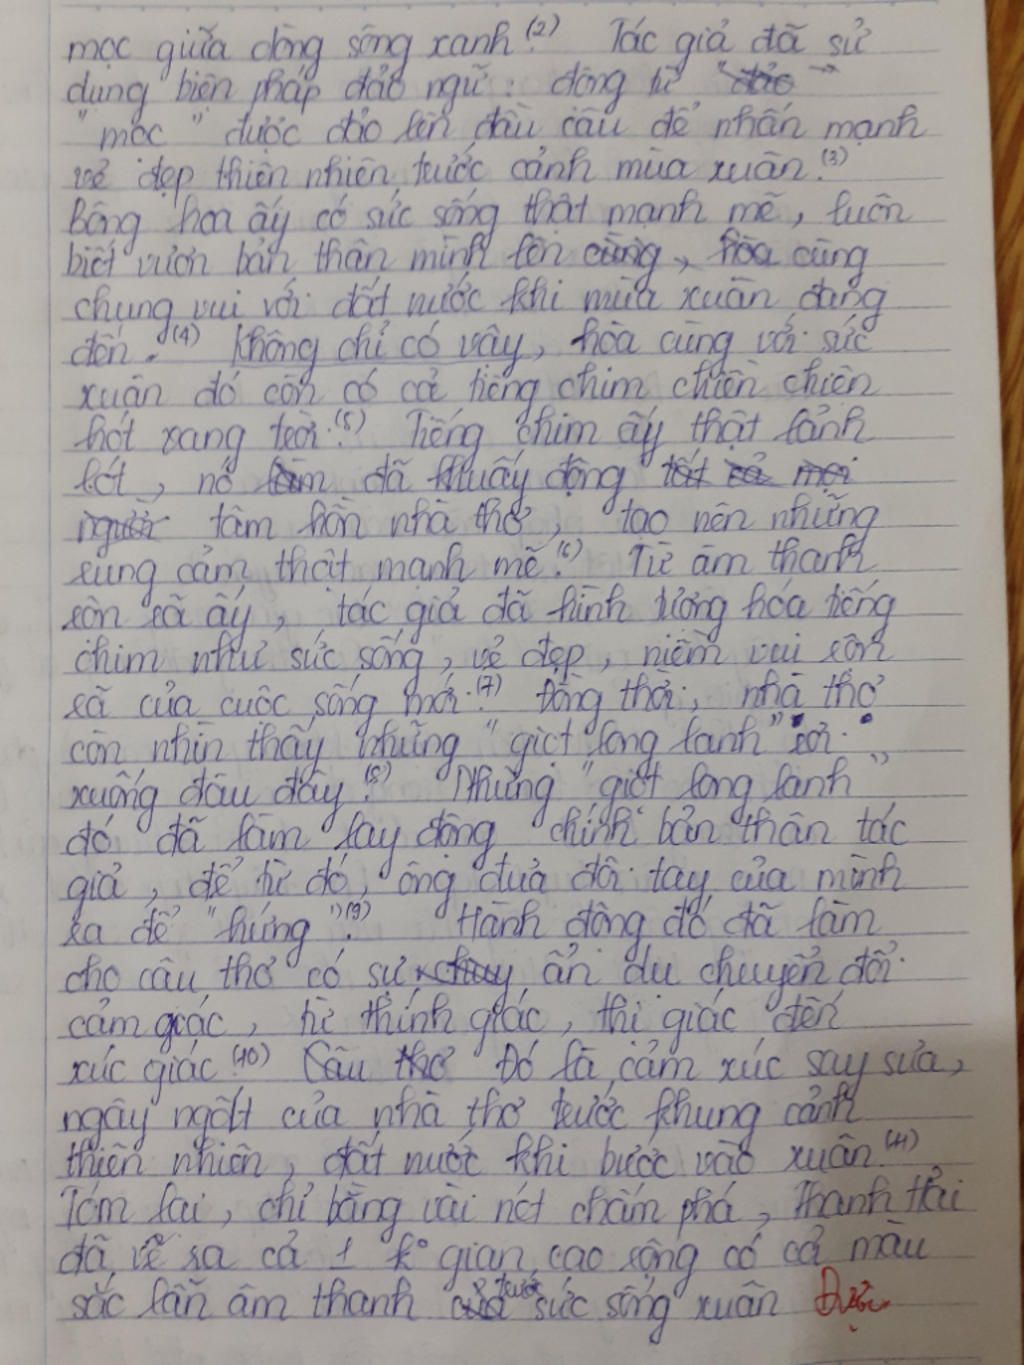 mọc giữa dòng sông xanh".(2) Tác giả đã sử
dụng biện pháp đảo ngữ: động từ "đảo
"mọc" được đảo lên đầu câu để nhấn mạnh
vẻ đẹp thiên nhiên trước cảnh mùa xuân.(3)
Bông hoa ấy có sức sống thật mạnh mẽ, luôn
biết vươn bản thân mình lên cùng, hòa cùng
chung vui với đất nước khi mùa xuân đang
đến.(4) Không chỉ có vậy, hòa cùng với sức
xuân đó còn có cả tiếng chim chiền chiện
hót vang trời.(5) Tiếng chim ấy thật lảnh
lót, nó làm đã khuấy động tất cả mọi
người tâm hồn nhà thơ, tạo nên những
rung cảm thật mạnh mẽ.(6) Từ âm thanh
rộn rã ấy, tác giả đã hình tượng hóa tiếng
chim như sức sống, vẻ đẹp, niềm vui rộn
rã của cuộc sống mới.(7) Đồng thời, nhà thơ
còn nhìn thấy những "giọt long lanh" rơi
xuống đâu đây.(8) Những "giọt long lanh"
đó đã làm lay động chính bản thân tác
giả, để từ đó, ông đưa đôi tay của mình
ra để "hứng".(9) Hành động đó đã làm
cho câu thơ có sự chuy ẩn dụ chuyển đổi
cảm giác, từ thính giác, thị giác đến
xúc giác.(10) Câu thơ Đó là cảm xúc say sưa,
ngây ngất của nhà thơ trước khung cảnh
thiên nhiên, đất nước khi bước vào xuân.(11)
Tóm lại, chỉ bằng vài nét chấm phá, Thanh Hải
đã vẽ ra cả 1 ko gian cao rộng có cả màu
sắc lẫn âm thanh của trước sức sống xuân Được